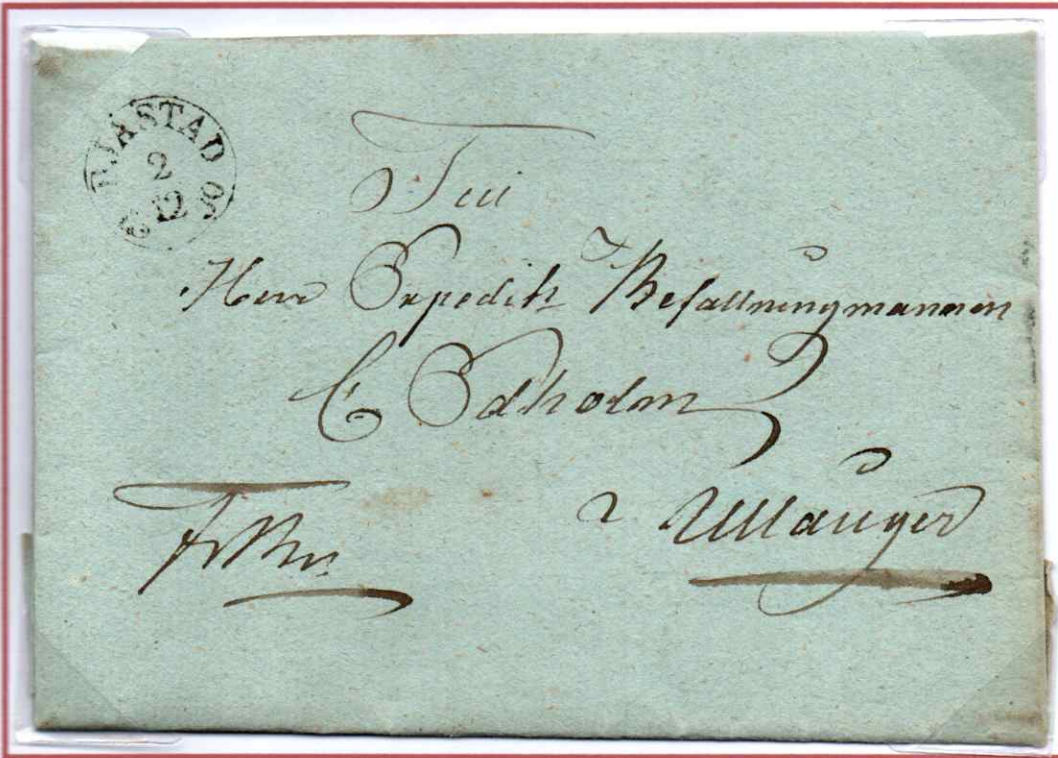 BJÄSTAD
2
12
Till
Herr Expedit: Befallningmannen
C Edholm
i Ullånger